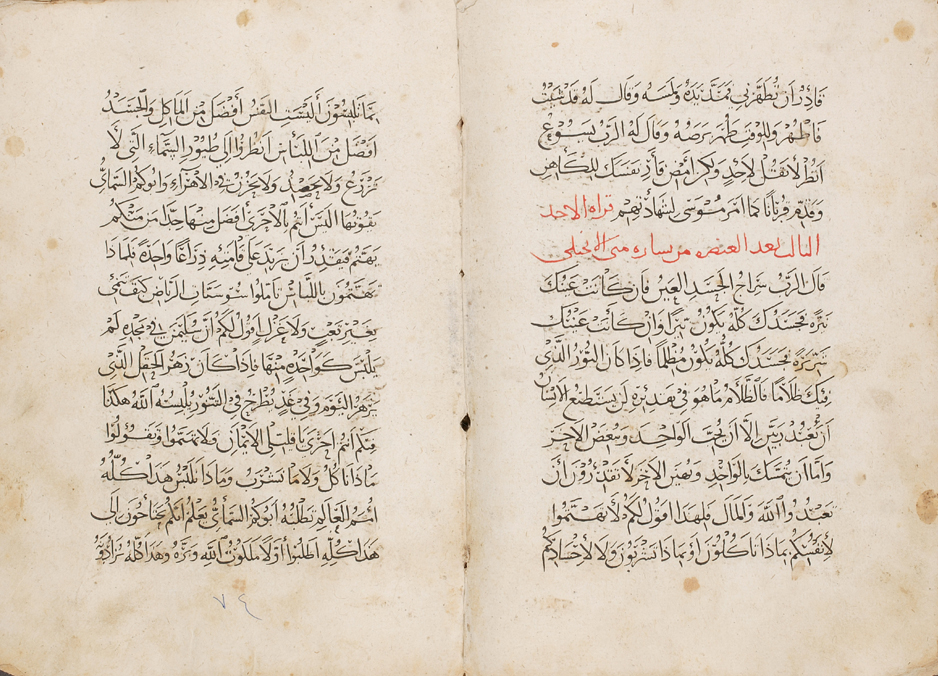 قادر ان تطهرني فمد يده ولمسه وقال له قد شيت
فاطهر وللوقت طهر برصه وقال له الرب يسوع
انظر لا تقل لاحد ولكن امض فأر نفسك للكاهن
وقدم قربانا كما امر موسى لشهادتهم قراه الاحد
الثالث بعد العنصره من بشاره متى الانجيلي
قال الرب سراج الجسد العين فان كانت عينك
نيره فجسدك كله يكون نيرا وان كانت عينك
شريرة فجسدك كله يكون مظلما فاذا كان النور الذي
فيك ظلاما فالظلام ما هو في هديره لن يستطيع الانسان
ان يعبد ربين الا ان يحب الواحد ويبغض الاخر
واما ان يتمسك بالواحد ويهين الاخر لا تقدرون ان
تعبدوا الله والمال فلهذا اقول لكم لا تهتموا
لانفسكم بماذا تاكلون او بماذا تشربون ولا لاجسادكم
بما تلبسون أليست النفس أفضل من المأكل والجسد
افضل من اللباس انظروا الى طيور السماء التي لا
تزرع ولا تحصد ولا تخزن في الأهراء وابوكم السمائي
يقوتها اليس أنتم بالاحرى أفضل منها جدا من منكم
يهتم فيقدر أن يزيد على قامته ذراعا واحدة فلماذا
تهتمون باللباس تاملوا سوسنات الرياض كيف تنمى
بغير تعب ولا غزل اقول لكم أن سليمن في مجده لم
يلبس كواحدة منها فاذا كان زهر الحقل الذي
يزهر اليوم وفي غد يطرح في التنور يلبسه الله هكذا
فبكم انتم احرى يا قليلي الايمان ولا تهتموا وتقولوا
ماذا ناكل ولا ما نشرب وماذا نلبس هذا كله
أمم العالم تطلبه ابوكم السمائي يعلم انكم تحتاجون الى
هذا كله اطلبوا أولا ملكوت الله وبره وهذا كله تزادوه
٧٤